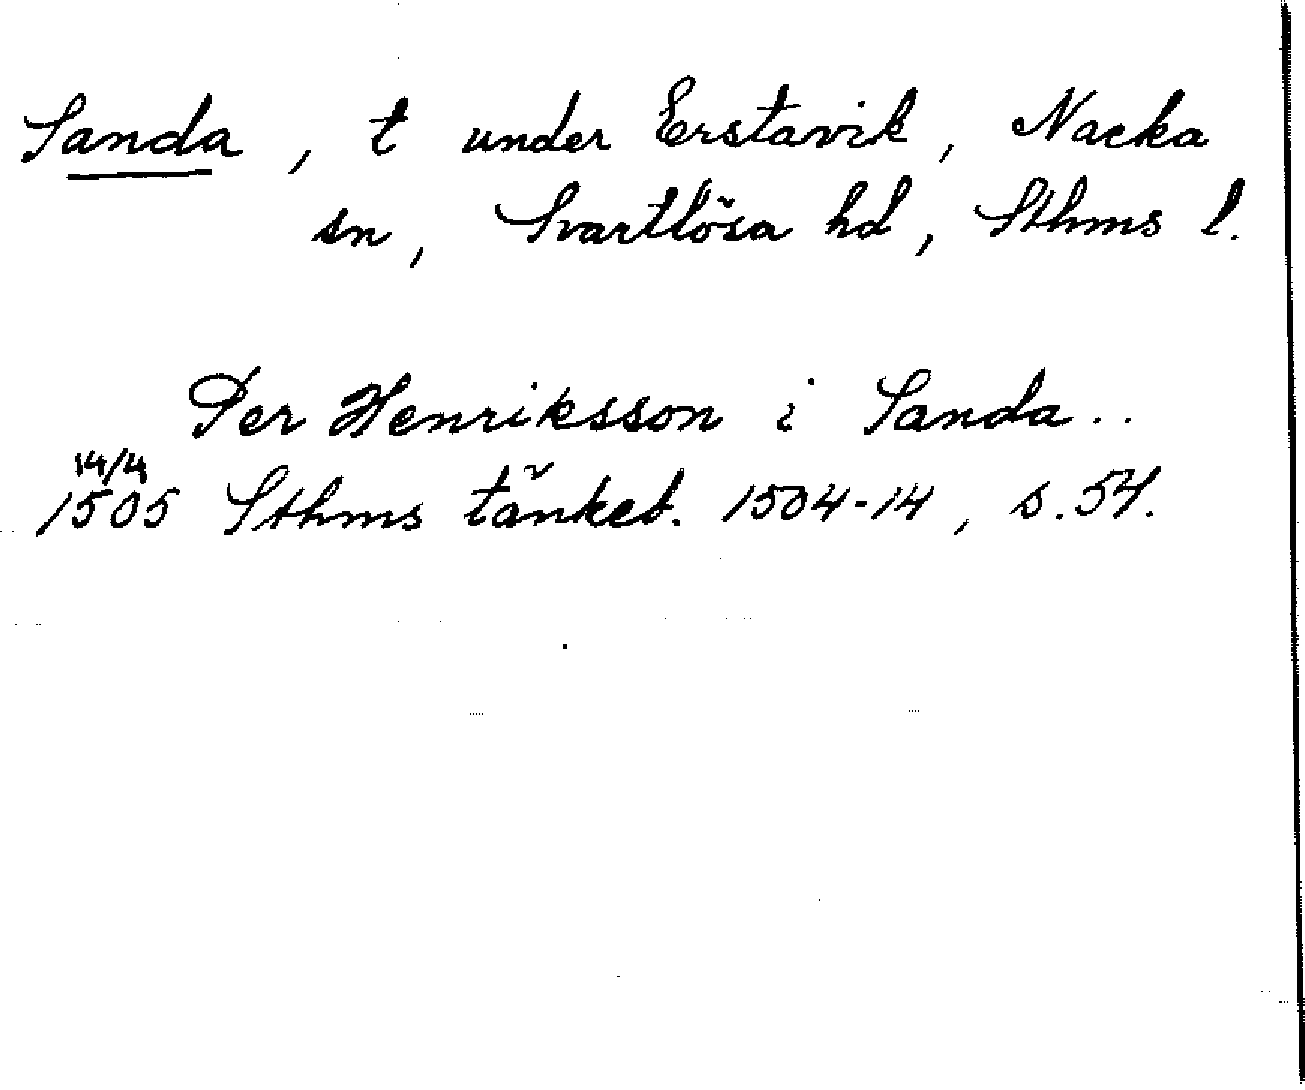 Sanda, t under Erstavik, Nacka
sn, Svartlösa hd, Sthms l.
Per Henriksson i Sanda..
14/4
1505 Sthms tänkeb. 1504-14, s. 54.